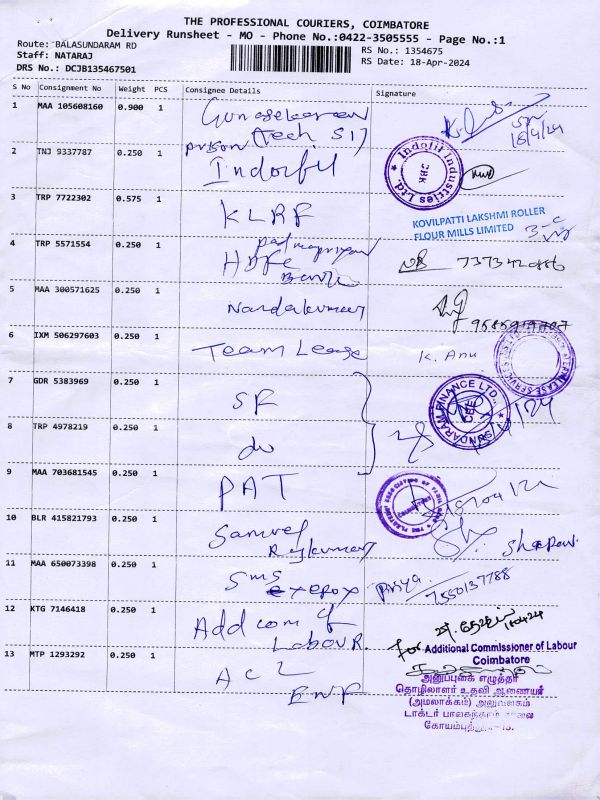 THE PROFESSIONAL COURIERS, COIMBATORE
Delivery Runsheet - MO - Phone No.:0422-3505555 - Page No.:1
Route: BALASUNDARAM RD
Staff: NATARAJ
DRS No.: DCJB135467501
RS No.: 1354675
RS Date: 18-Apr-2024
S No Consignment No Weight PCS Consignee Details Signature
1 MAA 105608160 0.900 1
prison (Tech SI)
18/4/24
2 TNJ 9337787 0.250 1 Indofil
Indofil Industries Ltd.
3 TRP 7722302 0.575 1 KLRF
KOVILPATTI LAKSHMI ROLLER
FLOUR MILLS LIMITED
4 TRP 5571554 0.250 1
HDFC
Bank
5 MAA 300571625 0.250 1 Nandakumar
6 IXM 506297603 0.250 1 Team Lease K. Anu
7 GDR 5383969 0.250 1 SF
SUNDARAM FINANCE LTD.
8 TRP 4978219 0.250 1 do
9 MAA 703681545 0.250 1 PAT
10 BLR 415821793 0.250 1 Samuel
Rajkumar
11 MAA 650073398 0.250 1 SMS
xerox Priya 7550137788
12 KTG 7146418 0.250 1 Add com of
Labour.
for Additional Commissioner of Labour
Coimbatore
13 MTP 1293292 0.250 1 ACL
ENF
அனுப்புகை எழுத்தர்
தொழிலாளர் உதவி ஆணையர்
(அமலாக்கம்) அலுவலகம்
டாக்டர் பாலசுந்தரம் சாலை
கோயம்புத்தூர்-18.